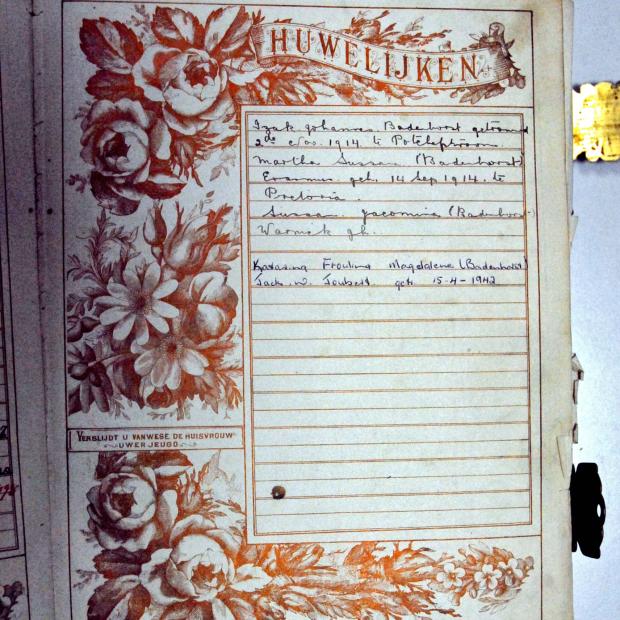 HUWELIJKEN
Izak Johannes Badenhorst getrouwd
2de Nov. 1914 te Potchefstroom.
Martha Susan (Badenhorst)
Erasmus geh. 14 Sep 1914. te
Pretoria.
Susan Jacomina (Badenhorst)
Warnick gh.
Katarina Froulina Magdalene (Badenhorst)
Jack. W. Joubert geh 15-4-1942
VERBLIJDT U VANWEGE DE HUISVROUW
UWER JEUGD